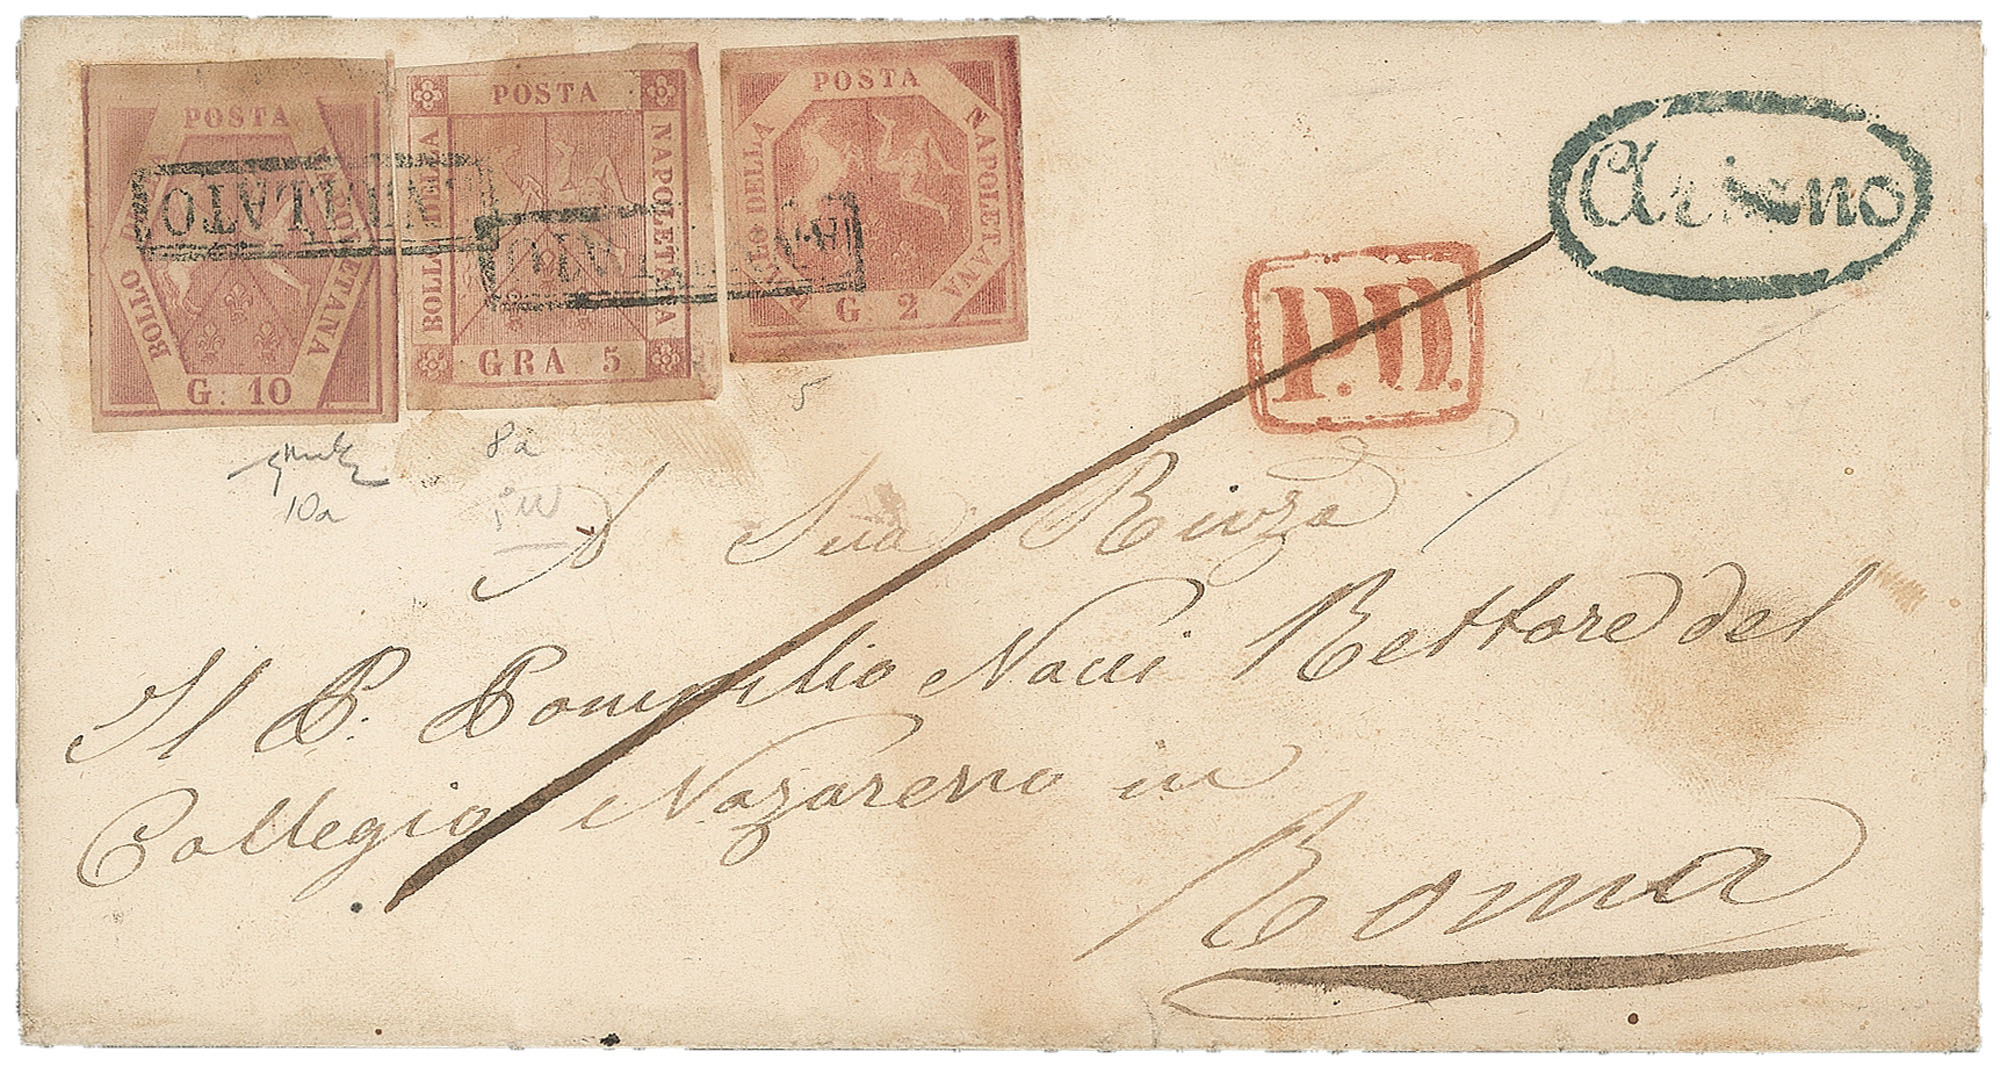 POSTA
BOLLO DELLA NAPOLETANA
G. 10
POSTA
BOLLO DELLA NAPOLETANA
GRA 5
POSTA
BOLLO DELLA NAPOLETANA
G. 2
ANNULLATO
ANNULLATO
Ariano
P.D.
5
8a
10a
A Sua Rivza
Il P. Pompilio Nocci Rettore del
Collegio Nazareno in
Roma